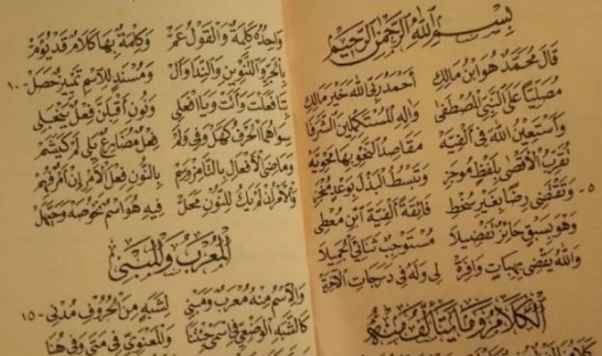 بِسْمِ اللهِ الرَّحْمٰنِ الرَّحِيمِ
قَالَ مُحَمَّدٌ هُوَ ابْنُ مَالِكِ أَحْمَدُ رَبِّي اللهَ خَيْرَ مَالِكِ
مُصَلِّيًا عَلَى النَّبِيِّ الْمُصْطَفَى وَآلِهِ الْمُسْتَكْمِلِينَ الشَّرَفَا
وَأَسْتَعِينُ اللهَ فِي أَلْفِيَّهْ مَقَاصِدُ النَّحْوِ بِهَا مَحْوِيَّهْ
تُقَرِّبُ الْأَقْصَى بِلَفْظٍ مُوجَزِ وَتَبْسُطُ الْبَذْلَ بِوَعْدٍ مُنْجَزِ
٥- وَتَقْتَضِي رِضًا بِغَيْرِ سُخْطِ فَائِقَةً أَلْفِيَّةَ ابْنِ مُعْطِي
وَهْوَ بِسَبْقٍ حَائِزٌ تَفْضِيلَا مُسْتَوْجِبٌ ثَنَائِيَ الْجَمِيلَا
وَاللهُ يَقْضِي بِهِبَاتٍ وَافِرَهْ لِي وَلَهُ فِي دَرَجَاتِ الْآخِرَهْ
الْكَلَامُ وَمَا يَتَأَلَّفُ مِنْهُ
وَاحِدُهُ كَلِمَةٌ وَالْقَوْلُ عَمّْ وَكِلْمَةٌ بِهَا كَلَامٌ قَدْ يُؤَمّْ
بِالْجَرِّ وَالتَّنْوِينِ وَالنِّدَا وَأَلْ وَمُسْنَدٍ لِلِاسْمِ تَمْيِيزٌ حَصَلْ -١٠
بِتَا فَعَلْتَ وَأَتَتْ وَيَا افْعَلِي وَنُونِ أَقْبِلَنَّ فِعْلٌ يَنْجَلِي
سِوَاهُمَا الْحَرْفُ كَهَلْ وَفِي وَلَمْ فِعْلٌ مُضَارِعٌ يَلِي لَمْ كَيَشَمْ
وَمَاضِيَ الْأَفْعَالِ بِالتَّا مِزْ وَسِمْ بِالنُّونِ فِعْلَ الْأَمْرِ إِنْ أَمْرٌ فُهِمْ
وَالْأَمْرُ إِنْ لَمْ يَكُ لِلنُّونِ مَحَلّْ فِيهِ هُوَ اسْمٌ نَحْوُ صَهْ وَحَيَّهَلْ
الْمُعْرَبُ وَالْمَبْنِي
وَالِاسْمُ مِنْهُ مُعْرَبٌ وَمَبْنِي لِشَبَهٍ مِنَ الْحُرُوفِ مُدْنِي -١٥
كَالشَّبَهِ الْوَضْعِيِّ فِي اسْمَيْ جِئْتَنَا وَالْمَعْنَوِيِّ فِي مَتَى وَفِي هُنَا